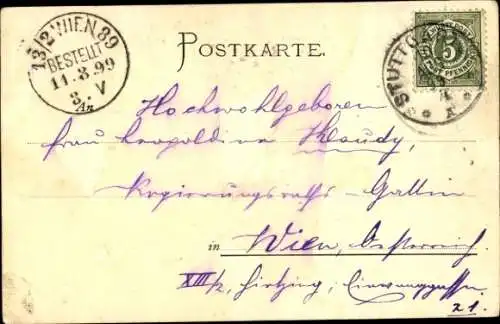 13/2 WIEN 89
BESTELLT
11.3.99
8. V
An
POSTKARTE.
STUTTG
5
Hochwohlgeboren
Frau Leopoldine Klaudy,
Regierungsraths-Gattin
in Wien, Österreich.
XIII/2, Hietzing, 
21.